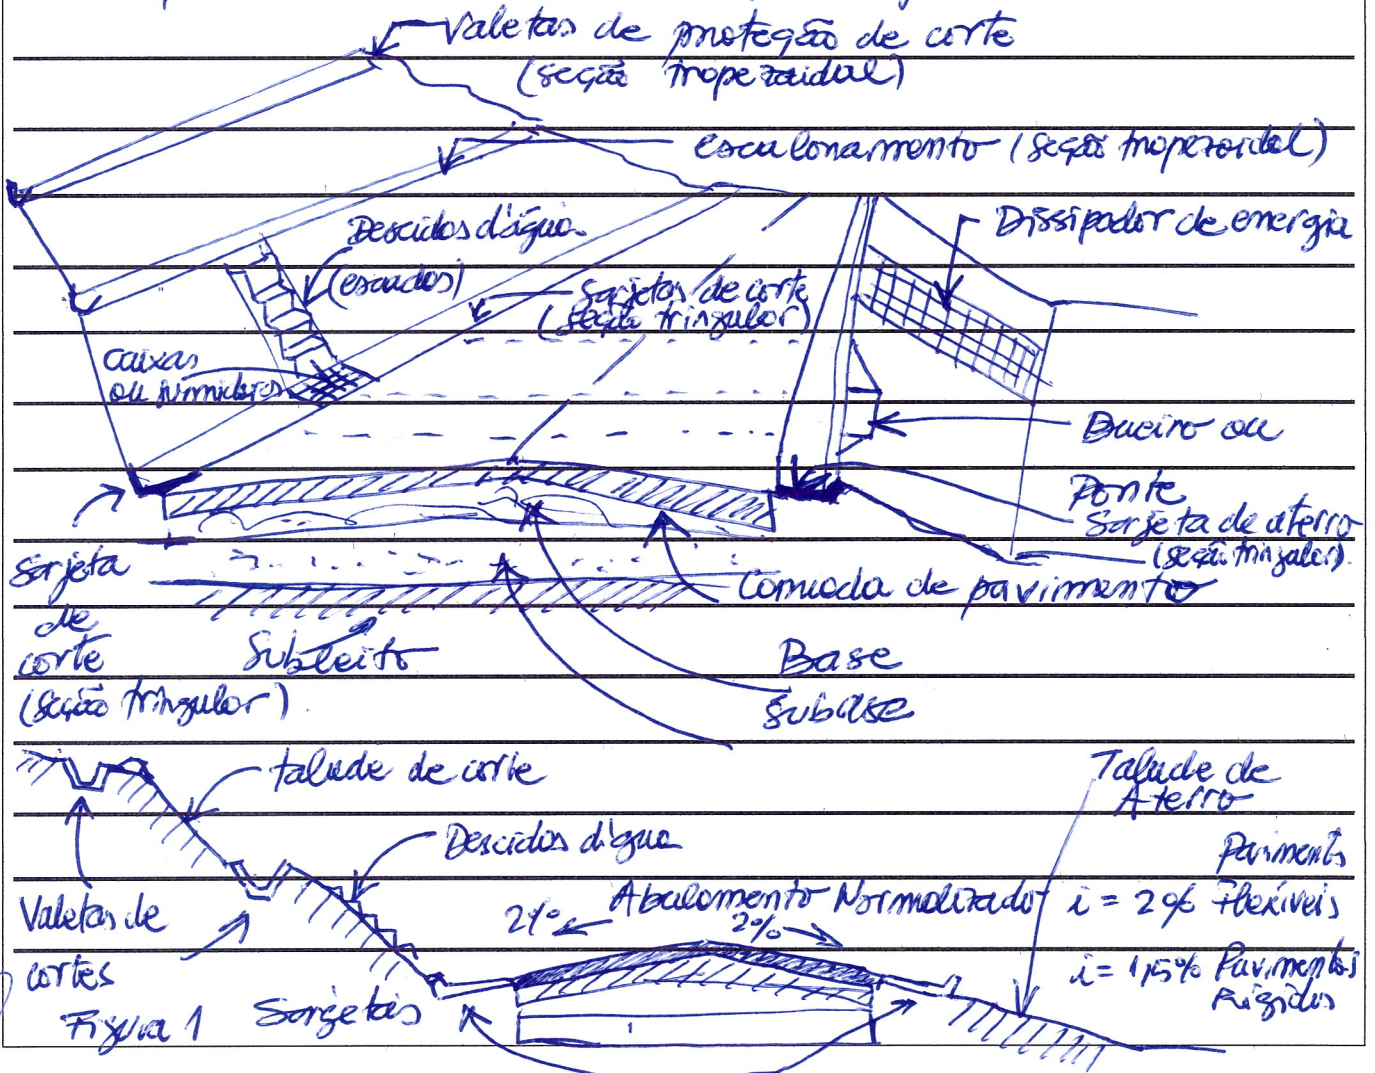 Valetas de proteção de corte
(seção tropezoidal)
escalonamento (seção tropezoidal)
Descidas d'água
(escadas)
Dissipador de energia
Sarjetas de corte
(seção tringular)
caixas
ou sumidores
Bueiro ou
Ponte
Sarjeta de aterro
(seção tringular)
Sarjeta
de
corte
(seção tringular)
Camada de pavimento
Subleito
Base
Subase
talude de corte
Talude de
Aterro
Descidas d'água
Valetas de
cortes
Abalamento Normalizado
2%
2%
Pavimentos
i = 2% Flexíveis
i = 1,5% Pavimentos
Rígidos
Sarjetas
Figura 1